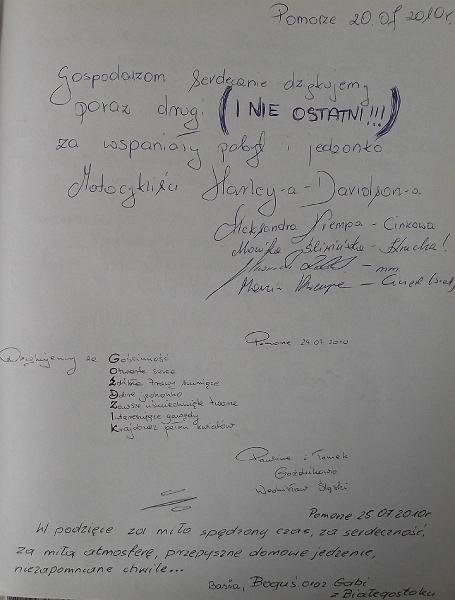 Pomorze 20.07 2010r.
Gospodarzom serdecznie dziękujemy
poraz drugi (I NIE OSTATNI!!!)
za wspaniały pobyt i jedzonko
Motocykliści Harley-a-Davidson-a
Aleksandra - Cinkowa
Monika
- mm
Maria
Pomorze 24.07.2010
Dziękujemy za Gościnność
Otwarte serce
Źdźbła trawy szumiące
Dobre jedzonko
Zawsze uśmiechnięte twarze
Interesujące gawędy
Krajobraz pełen kwiatów
Paulina i Tomek
Goździkowie
Wodzisław Śląski
Pomorze 25.07.2010r.
W podzięce za miło spędzony czas, za serdeczność,
za miłą atmosferę, przepyszne domowe jedzenie,
niezapomniane chwile...
Basia, Boguś oraz Gabi
z Białegostoku